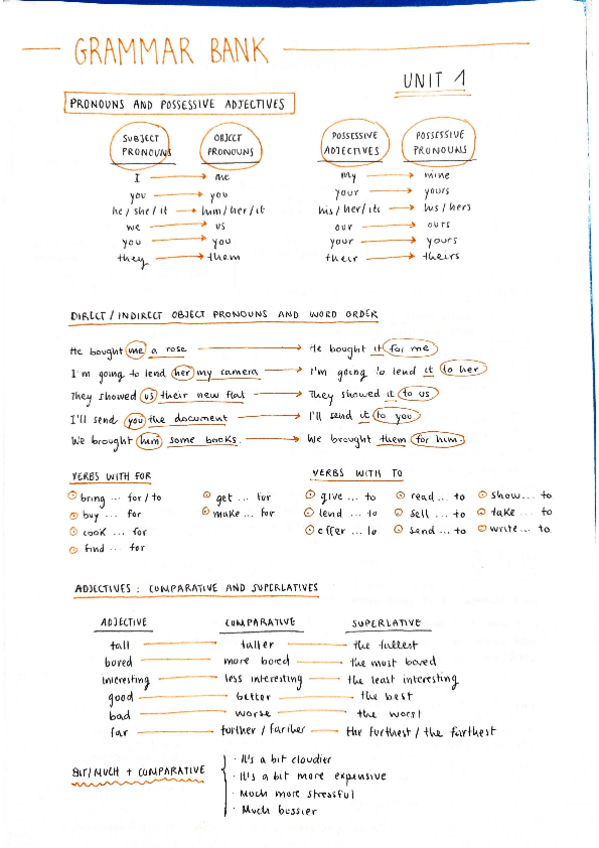 GRAMMAR BANK
UNIT 1
PRONOUNS AND POSSESSIVE ADJECTIVES
SUBJECT PRONOUNS OBJECT PRONOUNS POSSESSIVE ADJECTIVES POSSESSIVE PRONOUNS
I → me my → mine
you → you your → yours
he/she/it → him/her/it his/her/its → his/hers
we → us our → ours
you → you your → yours
they → them their → theirs
DIRECT/INDIRECT OBJECT PRONOUNS AND WORD ORDER
He bought me a rose → He bought it for me
I'm going to lend her my camera → I'm going to lend it to her
They showed us their new flat → They showed it to us
I'll send you the document → I'll send it to you
We brought him some books. → We brought them for him.
VERBS WITH FOR
bring ... for/to get ... for
buy ... for make ... for
cook ... for
find ... for
VERBS WITH TO
give ... to read ... to show... to
lend ... to sell ... to take ... to
offer ... to send ... to write... to
ADJECTIVES: COMPARATIVE AND SUPERLATIVES
ADJECTIVE COMPARATIVE SUPERLATIVE
tall taller the tallest
bored more bored the most bored
interesting less interesting the least interesting
good better the best
bad worse the worst
far further / farther the furthest / the farthest
BIT/MUCH + COMPARATIVE
· It's a bit cloudier
· It's a bit more expensive
· Much more stressful
· Much bossier